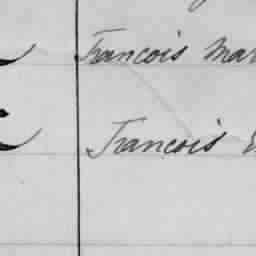 Francois Mar
Francois